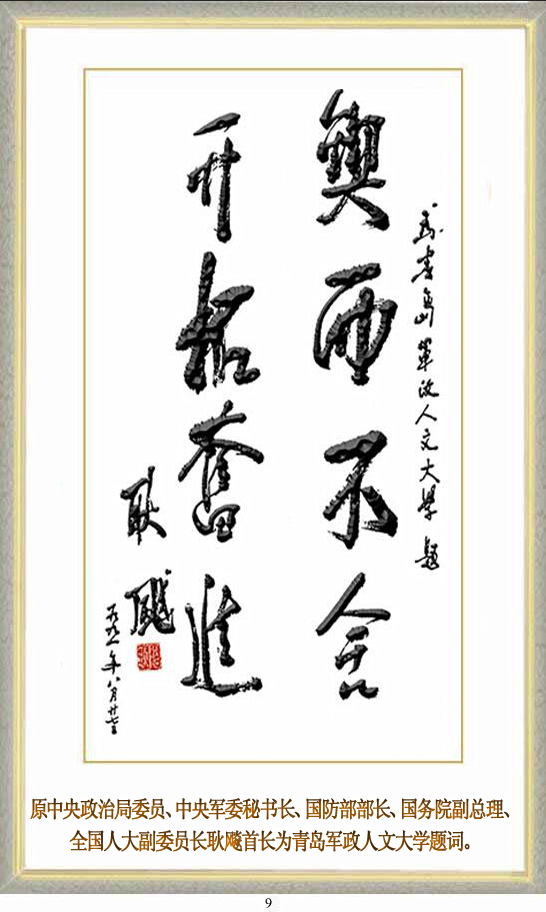 為青島軍政人文大學題
鍥而不舍
开拓奮進
耿飚
一九九一年八月廿
原中央政治局委员、中央军委秘书长、国防部部长、国务院副总理、
全国人大副委员长耿飚首长为青岛军政人文大学题词。
9